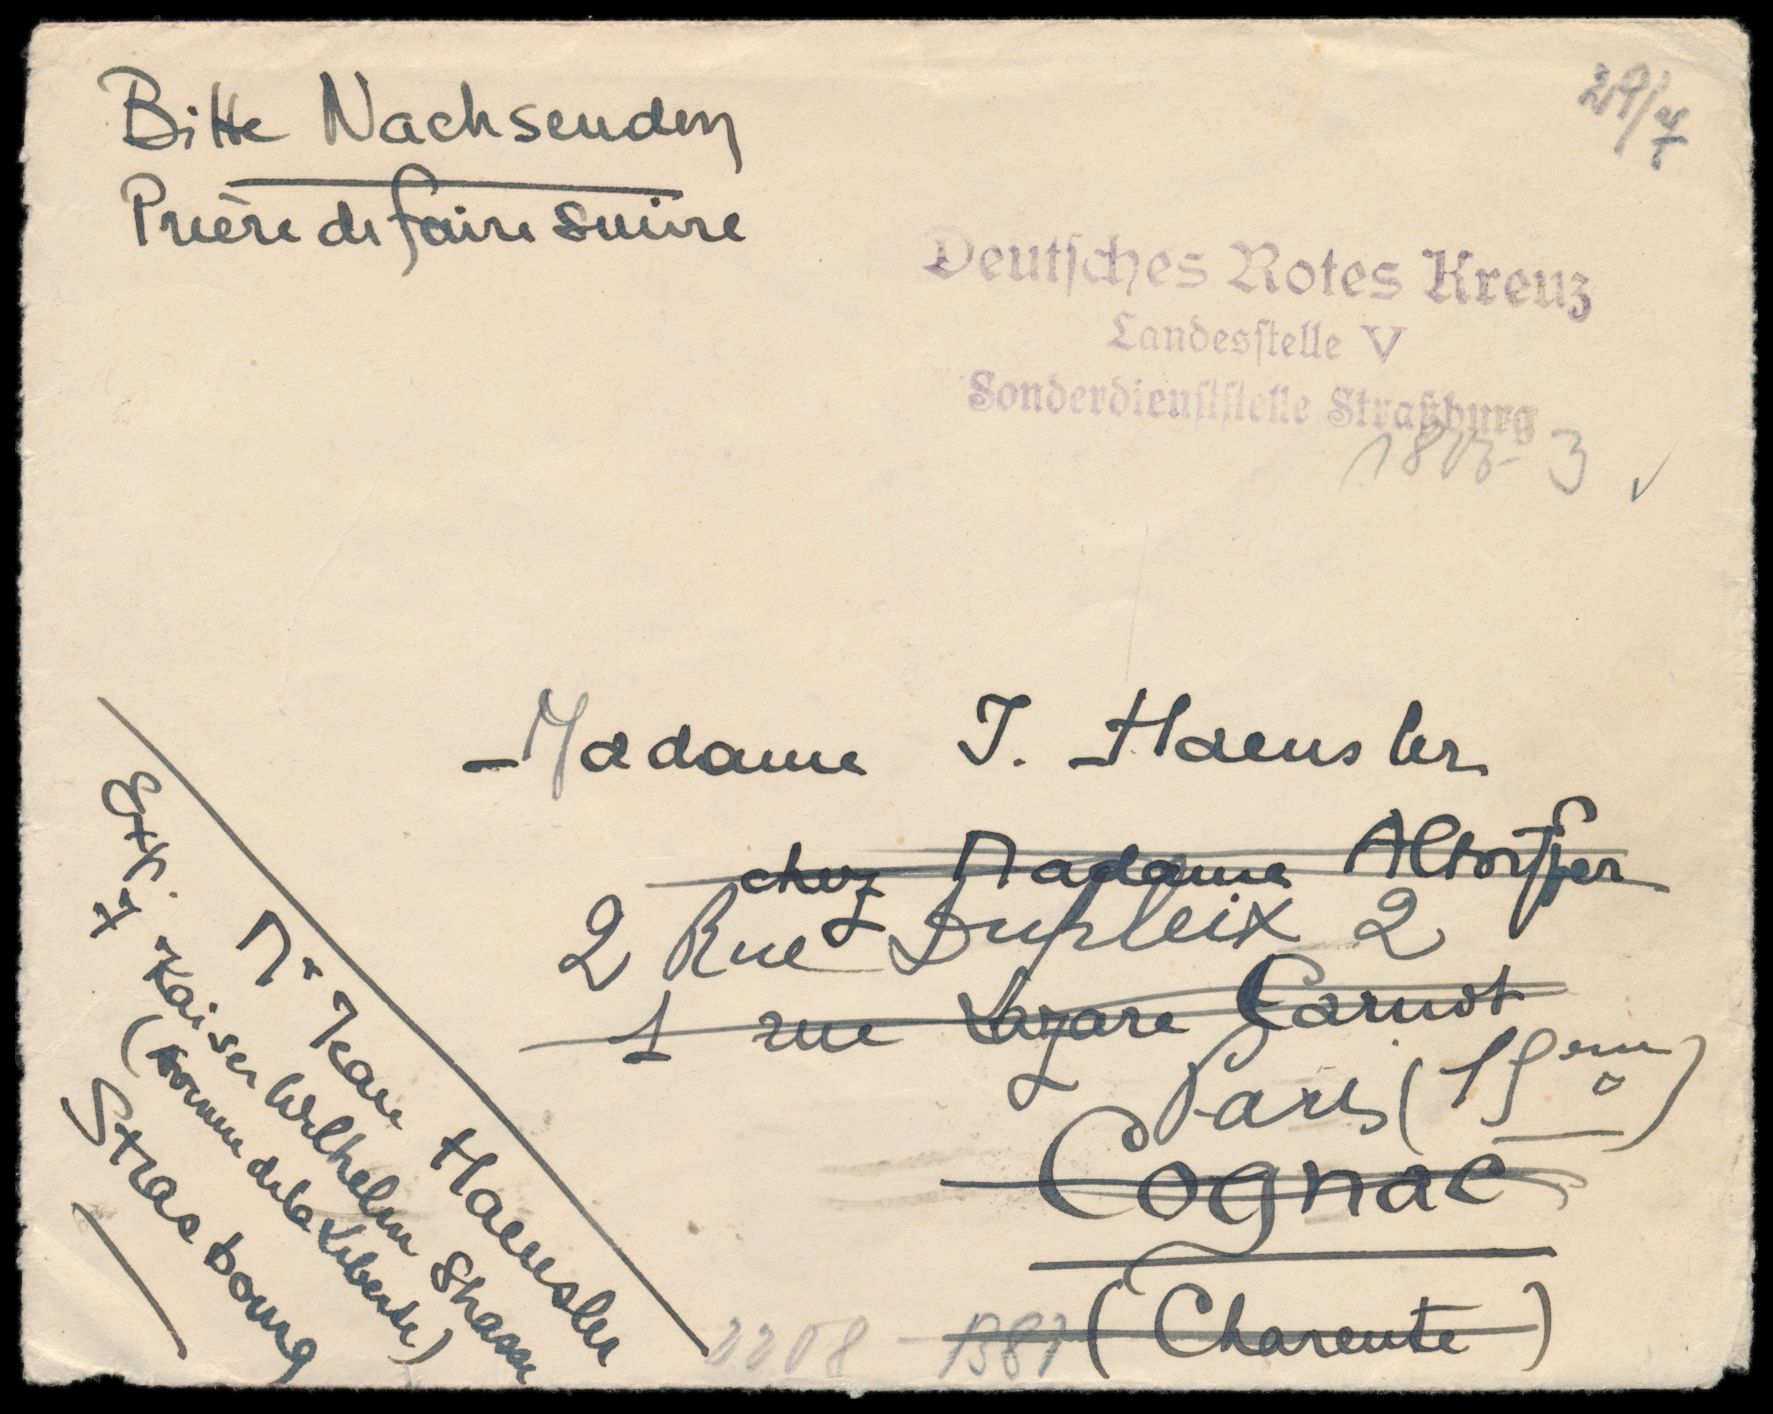 Bitte Nachsenden
Prière de faire suivre
29/7
Deutsches Rotes Kreuz
Landesstelle V
Sonderdienststelle Straßburg
3
Madame J. Haensler
chez Madame Altorffer
2 Rue Dupleix 2
1 rue Lazare Carnot
Paris (15eme)
Cognac
(Charente)
Exp. Mr Jean Haensler
7 Kaiser Wilhelm Strasse
(Avenue de la Liberté)
Strasbourg
2208 - 1381